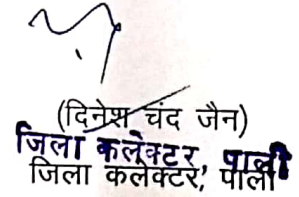 (दिनेश चंद जैन)
जिला कलेक्टर, पाली
जिला कलेक्टर, पाली